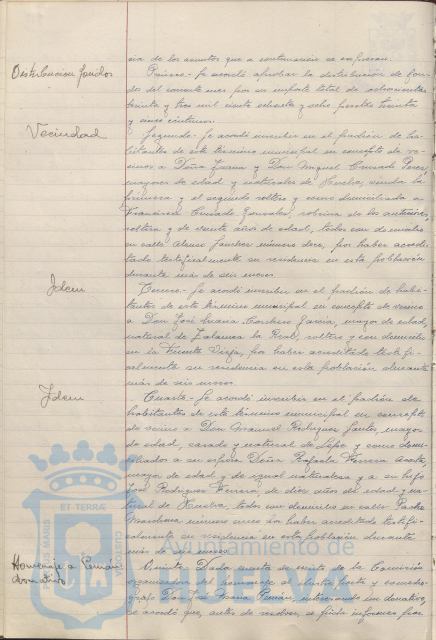 cia de los asuntos que a continuación se expresan.
Distribución fondos
Primero- Se acordó aprobar la distribución de fon-
dos del corriente mes por su importe total de ochocientas
treinta y tres mil ciento ochenta y ocho pesetas treinta
y cinco céntimos.
Vecindad
Segundo- Se acordó inscribir en el padrón de ha-
bitantes de este término municipal en concepto de ve-
cinos a Doña Juana y Don Miguel Cruzado Pérez,
mayores de edad y naturales de Huelva, viuda la
primera y el segundo soltero y como domiciliada a
Francisca Cruzado González, sobrina de los anteriores,
soltera y de veinte años de edad, todos con domicilio
en calle Alonso Sánchez número doce, por haber acredi-
tado testificalmente su residencia en esta población
durante más de seis meses.
Idem
Tercero- Se acordó inscribir en el padrón de habi-
tantes de este término municipal en concepto de vecino
a Don José María Cordero García, mayor de edad,
natural de Zalamea la Real, soltero y con domicilio
en la Fuente Vieja, por haber acreditado testifi-
calmente su residencia en esta población durante
más de seis meses.
Idem
Cuarto- Se acordó inscribir en el padrón de
habitantes de este término municipal en concepto
de vecino a Don Manuel Rodríguez Santos, mayor
de edad, casado y natural de Lepe y como domi-
ciliados a su esposa Doña Rafaela Ferrera Acosta,
mayor de edad y de igual naturaleza y a su hijo
José Rodríguez Ferrera, de diez años de edad y na-
tural de Huelva, todos con domicilio en calle Padre
Marchena número once por haber acreditado testifi-
calmente su residencia en esta población durante
más de seis meses.
Homenaje a Pemán
donativo
Quinto- Dada cuenta de escrito de la Comisión
organizadora del homenaje al ilustre poeta y comedió-
grafo Don José María Pemán, interesando un donativo,
se acordó que, antes de resolver, se pida informes por
Ayuntamiento de
HUELVA
PORTUS MARIS
ET TERRÆ
CUSTODIA